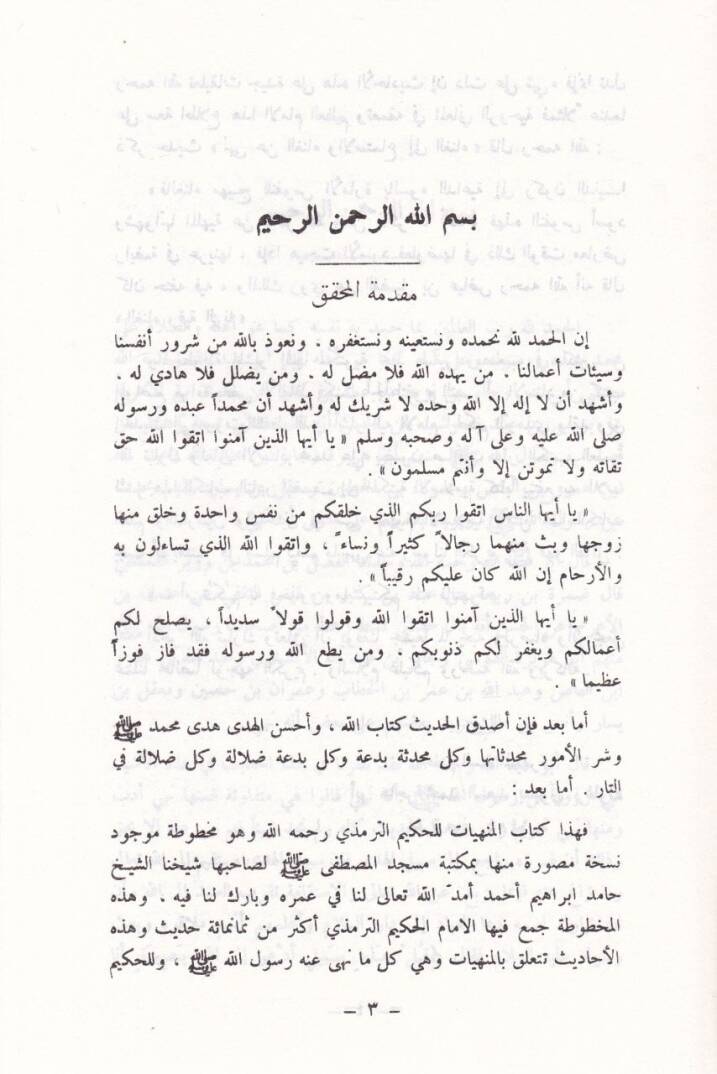 بسم الله الرحمن الرحيم
مقدمة المحقق
إن الحمد لله نحمده ونستعينه ونستغفره . ونعوذ بالله من شرور أنفسنا
وسيئات أعمالنا . من يهده الله فلا مضل له . ومن يضلل فلا هادي له .
وأشهد أن لا إله إلا الله وحده لا شريك له وأشهد أن محمداً عبده ورسوله
صلى الله عليه وعلى آله وصحبه وسلم « يا أيها الذين آمنوا اتقوا الله حق
تقاته ولا تموتن إلا وأنتم مسلمون » .
« يا أيها الناس اتقوا ربكم الذي خلقكم من نفس واحدة وخلق منها
زوجها وبث منهما رجالاً كثيراً ونساءً ، واتقوا الله الذي تساءلون به
والأرحام إن الله كان عليكم رقيباً » .
« يا أيها الذين آمنوا اتقوا الله وقولوا قولاً سديداً ، يصلح لكم
أعمالكم ويغفر لكم ذنوبكم . ومن يطع الله ورسوله فقد فاز فوزاً
عظيما » .
أما بعد فإن أصدق الحديث كتاب الله ، وأحسن الهدى هدى محمد ﷺ
وشر الأمور محدثاتها وكل محدثة بدعة وكل بدعة ضلالة وكل ضلالة في
النار . أما بعد :
فهذا كتاب المنهيات للحكيم الترمذي رحمه الله وهو مخطوطة موجود
نسخة مصورة منها بمكتبة مسجد المصطفى ﷺ لصاحبها شيخنا الشيخ
حامد ابراهيم أحمد أمدّ الله تعالى لنا في عمره وبارك لنا فيه . وهذه
المخطوطة جمع فيها الامام الحكيم الترمذي أكثر من ثمانمائة حديث وهذه
الأحاديث تتعلق بالمنهيات وهي كل ما نهى عنه رسول الله ﷺ ، وللحكيم
– ٣ –